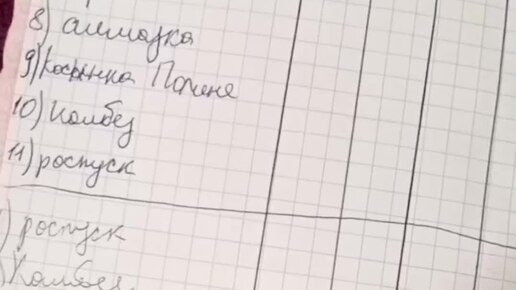 8) алмазка
9) Косынка Полине
10) Колбез
11) роспуск
) роспуск
) Колбез